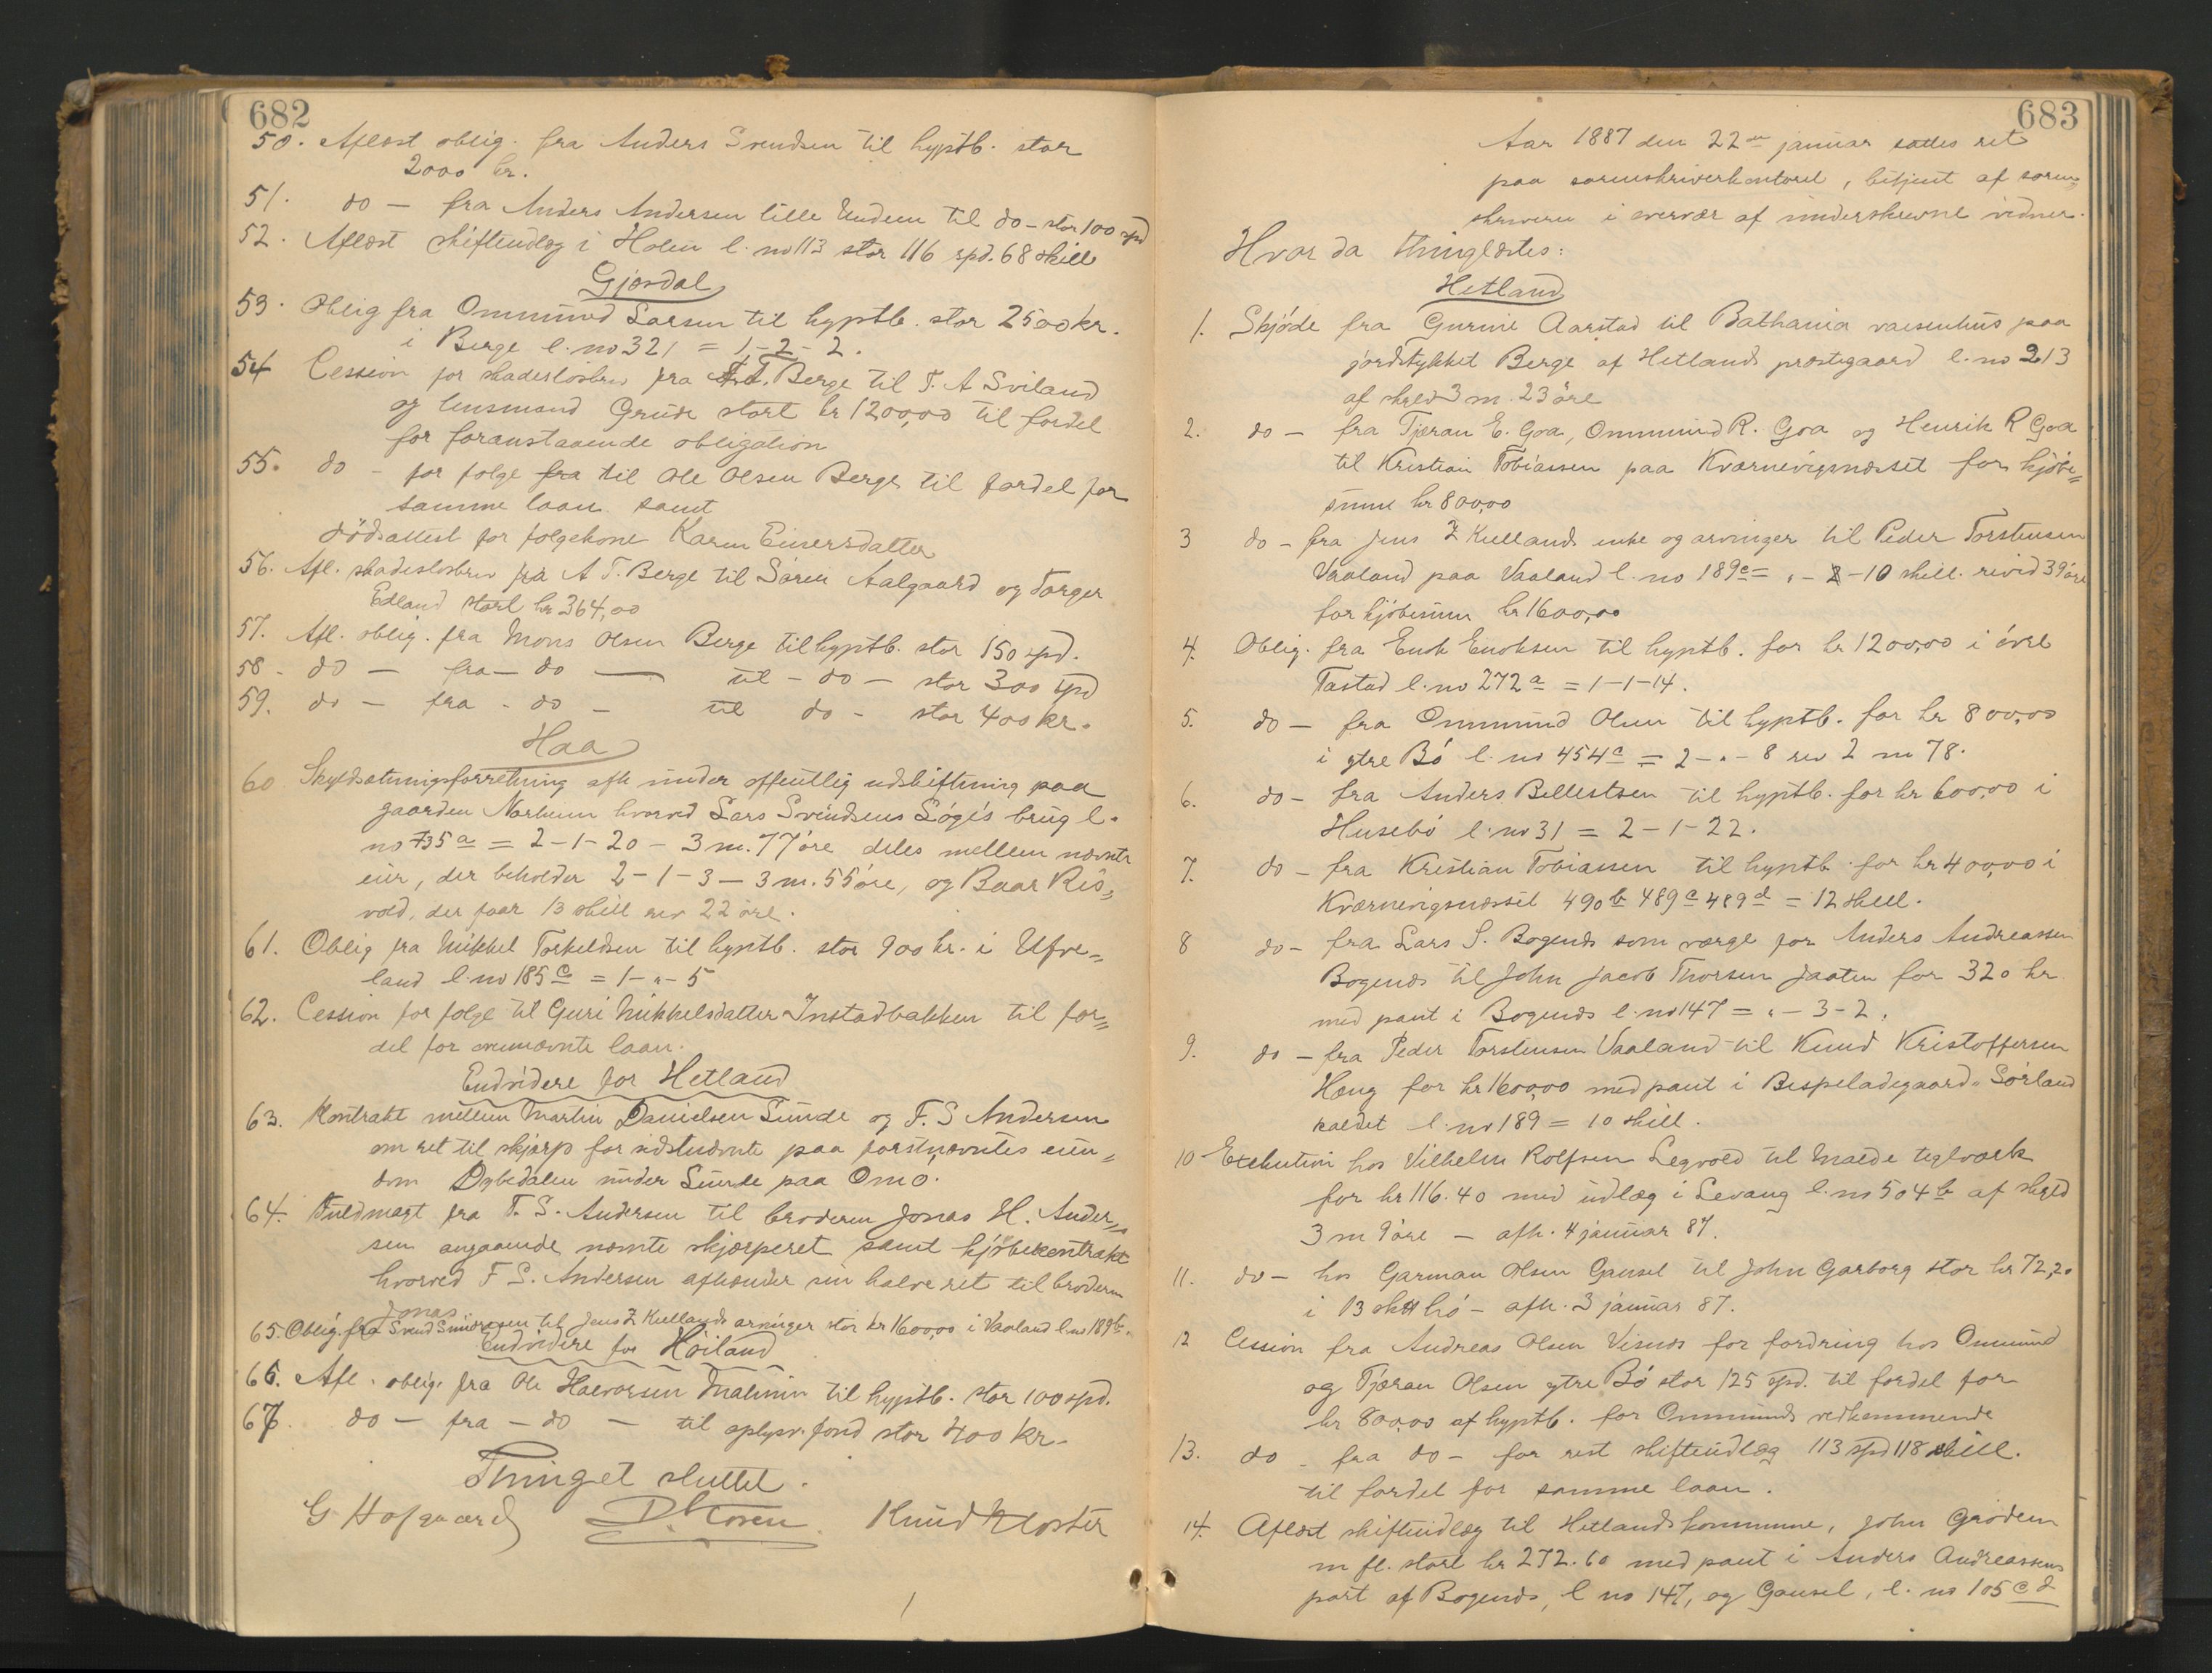 682
50. Aflæst oblig. fra Anders Svendsen til hyptb. stor
2000 kr.
51. do — fra Anders Andersen lille Undem til do - stor 100 spd
52. Aflæst skifteudlæg i Holen l. no 113 stor 116 spd. 68 skill
Gjesdal
53. Oblig fra Ommund Larsen til hyptb. stor 2500 kr.
i Berge l. no 321 = 1-2-2.
54 Cession for skadeslosbrev fra A.T. Berge til T. A Sviland
og lensmand Grude stort kr 1200,00 til fordel
for foranstaaende obligation
55. do - for folge fra til Ole Olsen Berge til fordel for
samme laan samt
dödsattest for folgekone Karen Einersdatter
56. Afl. skadeslosbrev fra A T. Berge til Sören Aalgaard og Torger
Edland stort kr 364,00
57. Afl. oblig. fra Mons Olsen Berge til hyptb. stor 150 spd.
58 - do — fra — do — til - do — stor 300 spd
59. do — fra - do — til do - stor 400 kr.
Haa
60 Skyldsætningsforretning afh under offentlig udskiftning paa
gaarden Narheim hvorved Lars Svendsens Lógés brug l.
no 735 a = 2-1-20 - 3 m. 77 öre deles mellem nævnte
eier, der beholder 2-1-3 — 3 m. 55 öre, og Baar Ris„
vold, der faar 13 skill rev 22 öre.
61. Oblig fra Mikkel Torkeldsen til hyptb. stor 900 kr. i Ufve„
land l. no 185 c = 1-"-5
62. Cession for folge til Guri Mikkelsdatter Instadbakken til for„
del for ovennævnte laan.
Endvidere for Hetland
63. Kontrakt mellem Martin Danielsen Sunde og F. S Andersen
om ret til skjærp for sidstnævnte paa forstnævntes eien„
dom Dybedalen under Sunde paa Omö.
64. Fuldmagt fra F. S. Andersen til broderen Jonas H. Ander„
sen angaaende nævnte skjærperet samt kjöbekontrakt
hvorved F S. Andersen afhænder sin halve ret til broderen
Jonas
65. Oblig. fra Svend Svendsen til Jens Z Kiellands arvinger stor kr 1600,00 i Vaaland l. no 189 b.
Endvidere for Höiland
66. Afl. oblig. fra Ole Halvorsen Malmin til hyptb. stor 100 spd.
67. do — fra — do — til oplysn. fond stor 400 kr.
Thinget sluttet.
G Hofgaard Knud Kloster
683
Aar 1887 den 22de januar sattes ret
paa sorenskriverkontoret, betjent af soren„
skriveren i overvær af underskrevne vidner.
Hvor da thinglæstes:
Hetland
1. Skjöde fra Gurine Aarstad til Bathania vaisenhus paa
jordstykket Berge af Hetlands præstegaard l. no 213
af skyld 3 m. 23 öre
2. do — fra Tjæran E. Goa, Ommund R. Goa og Henrik R Goa
til Kristian Tobiassen paa Kværnevignæsset for kjöbe„
sum kr 800,00
3 do - fra Jens Z Kiellands enke og arvinger til Peder Torstensen
Vaaland paa Vaaland l. no 189 c = "-"-10 skill. revid 39 öre
for kjöbesum kr 1600,00
4. Oblig. fra Enok Enoksen til hyptb. for kr 1200,00 i övre
Tastad l. no 272 a = 1-1-14.
5. do — fra Ommund Olsen til hyptb. for kr 800,00
i ytre Bö l. no 454 c = 2-"-8 rev 2 m 78.
6. do - fra Anders Bellestsen til hyptb. for kr 600,00 i
Husebö l. no 31 = 2-1-22.
7. do — fra Kristian Tobiassen til hyptb. for kr 400,00 i
Kværnevignæsset 490 b 489 c 489 d = 12 skill.
8 do - fra Lars S. Bogenes som værge for Anders Andreassen
Bogenes til John Jacob Thorsen Jaaten for 320 kr
med pant i Bogenes l. no 147 = "-3-2.
9. do — fra Peder Torstensen Vaaland til Knud Kristoffersen
Haug for kr 1600,00 med pant i Bispeladegaard„ Sörland
kaldet l. no 189 = 10 skill.
10 Exekution hos Vilhelm Rolfsen Legvold til Malde teglværk
for kr 116.40 med udlæg i Levang l. no 504 b af skyld
3 m 9 öre — afh. 4 januar 87.
11. do — hos Garman Olsen Gausel til John Garborg stor kr 72,20
i 13 sktt hö - afh. 3 januar 87.
12 Cession fra Andreas Olsen Visnes for fordring hos Ommund
og Tjæran Olsen ytre Bö stor 125 spd. til fordel for
kr 800,00 af hyptb. for Ommunds vedkommende
13. do - fra do - for rest skifteudlæg 113 spd 118 skill.
til fordel for samme laan.
14. Aflæst skifteudlæg til Hetlands kommune, John Grödem
m fl. stort kr 272.60 med pant i Anders Andreassens
part af Bogenes, l no 147, og Gausel, l. no 105 c d